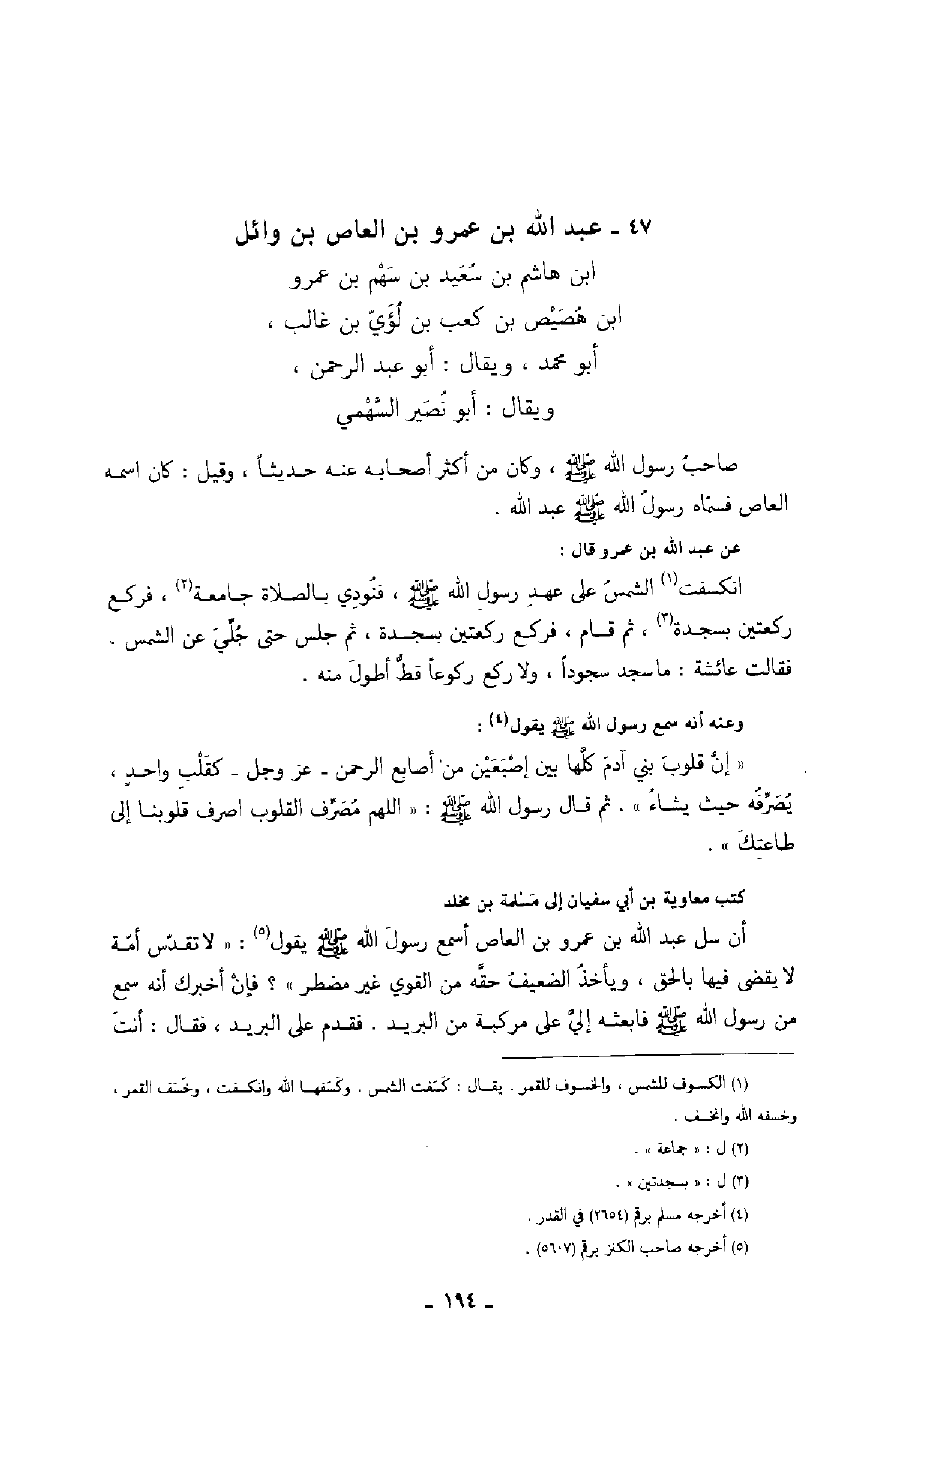 ٤٧ ـ عبد الله بن عمرو بن العاص بن وائل
ابن هاشم بن سُعَيد بن سَهْم بن عمرو
ابن هُصَيْص بن كعب بن لُؤَيّ بن غالب ،
أبو محمد ، ويقال : أبو عبد الرحمن ،
ويقال : أبو نُصَير السَّهْمي
صاحبُ رسول الله ﷺ ، وكان من أكثر أصحابه عنه حديثاً ، وقيل : كان اسمه
العاص فسمّاه رسولُ الله ﷺ عبد الله .
عن عبد الله بن عمرو قال :
انكسفت(١) الشمسُ على عهدِ رسولِ الله ﷺ ، فنُودِي بالصلاة جامعة(٢) ، فركع
ركعتين بسجدة(٣) ، ثم قام ، فركع ركعتين بسجدة ، ثم جلس حتى جُلِّيَ عن الشمس .
فقالت عائشة : ماسجد سجوداً ، ولا ركع ركوعاً قطُّ أطولَ منه .
وعنه أنه سمع رسول الله ﷺ يقول(٤) :
« إنَّ قلوبَ بني آدمَ كلَّها بين إصْبَعَيْن من أصابع الرحمن ـ عز وجل ـ كقَلْبٍ واحدٍ ،
يُصَرِّفُه حيث يشاءُ » . ثم قال رسول الله ﷺ : « اللهم مُصَرِّف القلوب اصرف قلوبنا إلى
طاعتِكَ » .
كتب معاوية بن أبي سفيان إلى مَسْلمة بن مخلد
أن سل عبد الله بن عمرو بن العاص أسمع رسولَ الله ﷺ يقول(٥) : « لا تقدّس أمّة
لا يقضى فيها بالحق ، ويأخذُ الضعيفُ حقَّه من القوي غير مضطر » ؟ فإنْ أخبرك أنه سمع
من رسول الله ﷺ فابعثه إليَّ على مركبة من البريد . فقدم على البريد ، فقال : أنتَ
(١) الكسوف للشمس ، والخسوف للقمر . يقال : كَسَفت الشمس . وكسَفها الله وانكسفت ، وخَسَف القمر ،
وخسفه الله وانخسف .
(٢) ل : « جماعة » .
(٣) ل : « بسجدتين » .
(٤) أخرجه مسلم برقم (٢٦٥٤) في القدر .
(٥) أخرجه صاحب الكنز برقم (٥٦٠٧) .
ـ ١٩٤ ـ